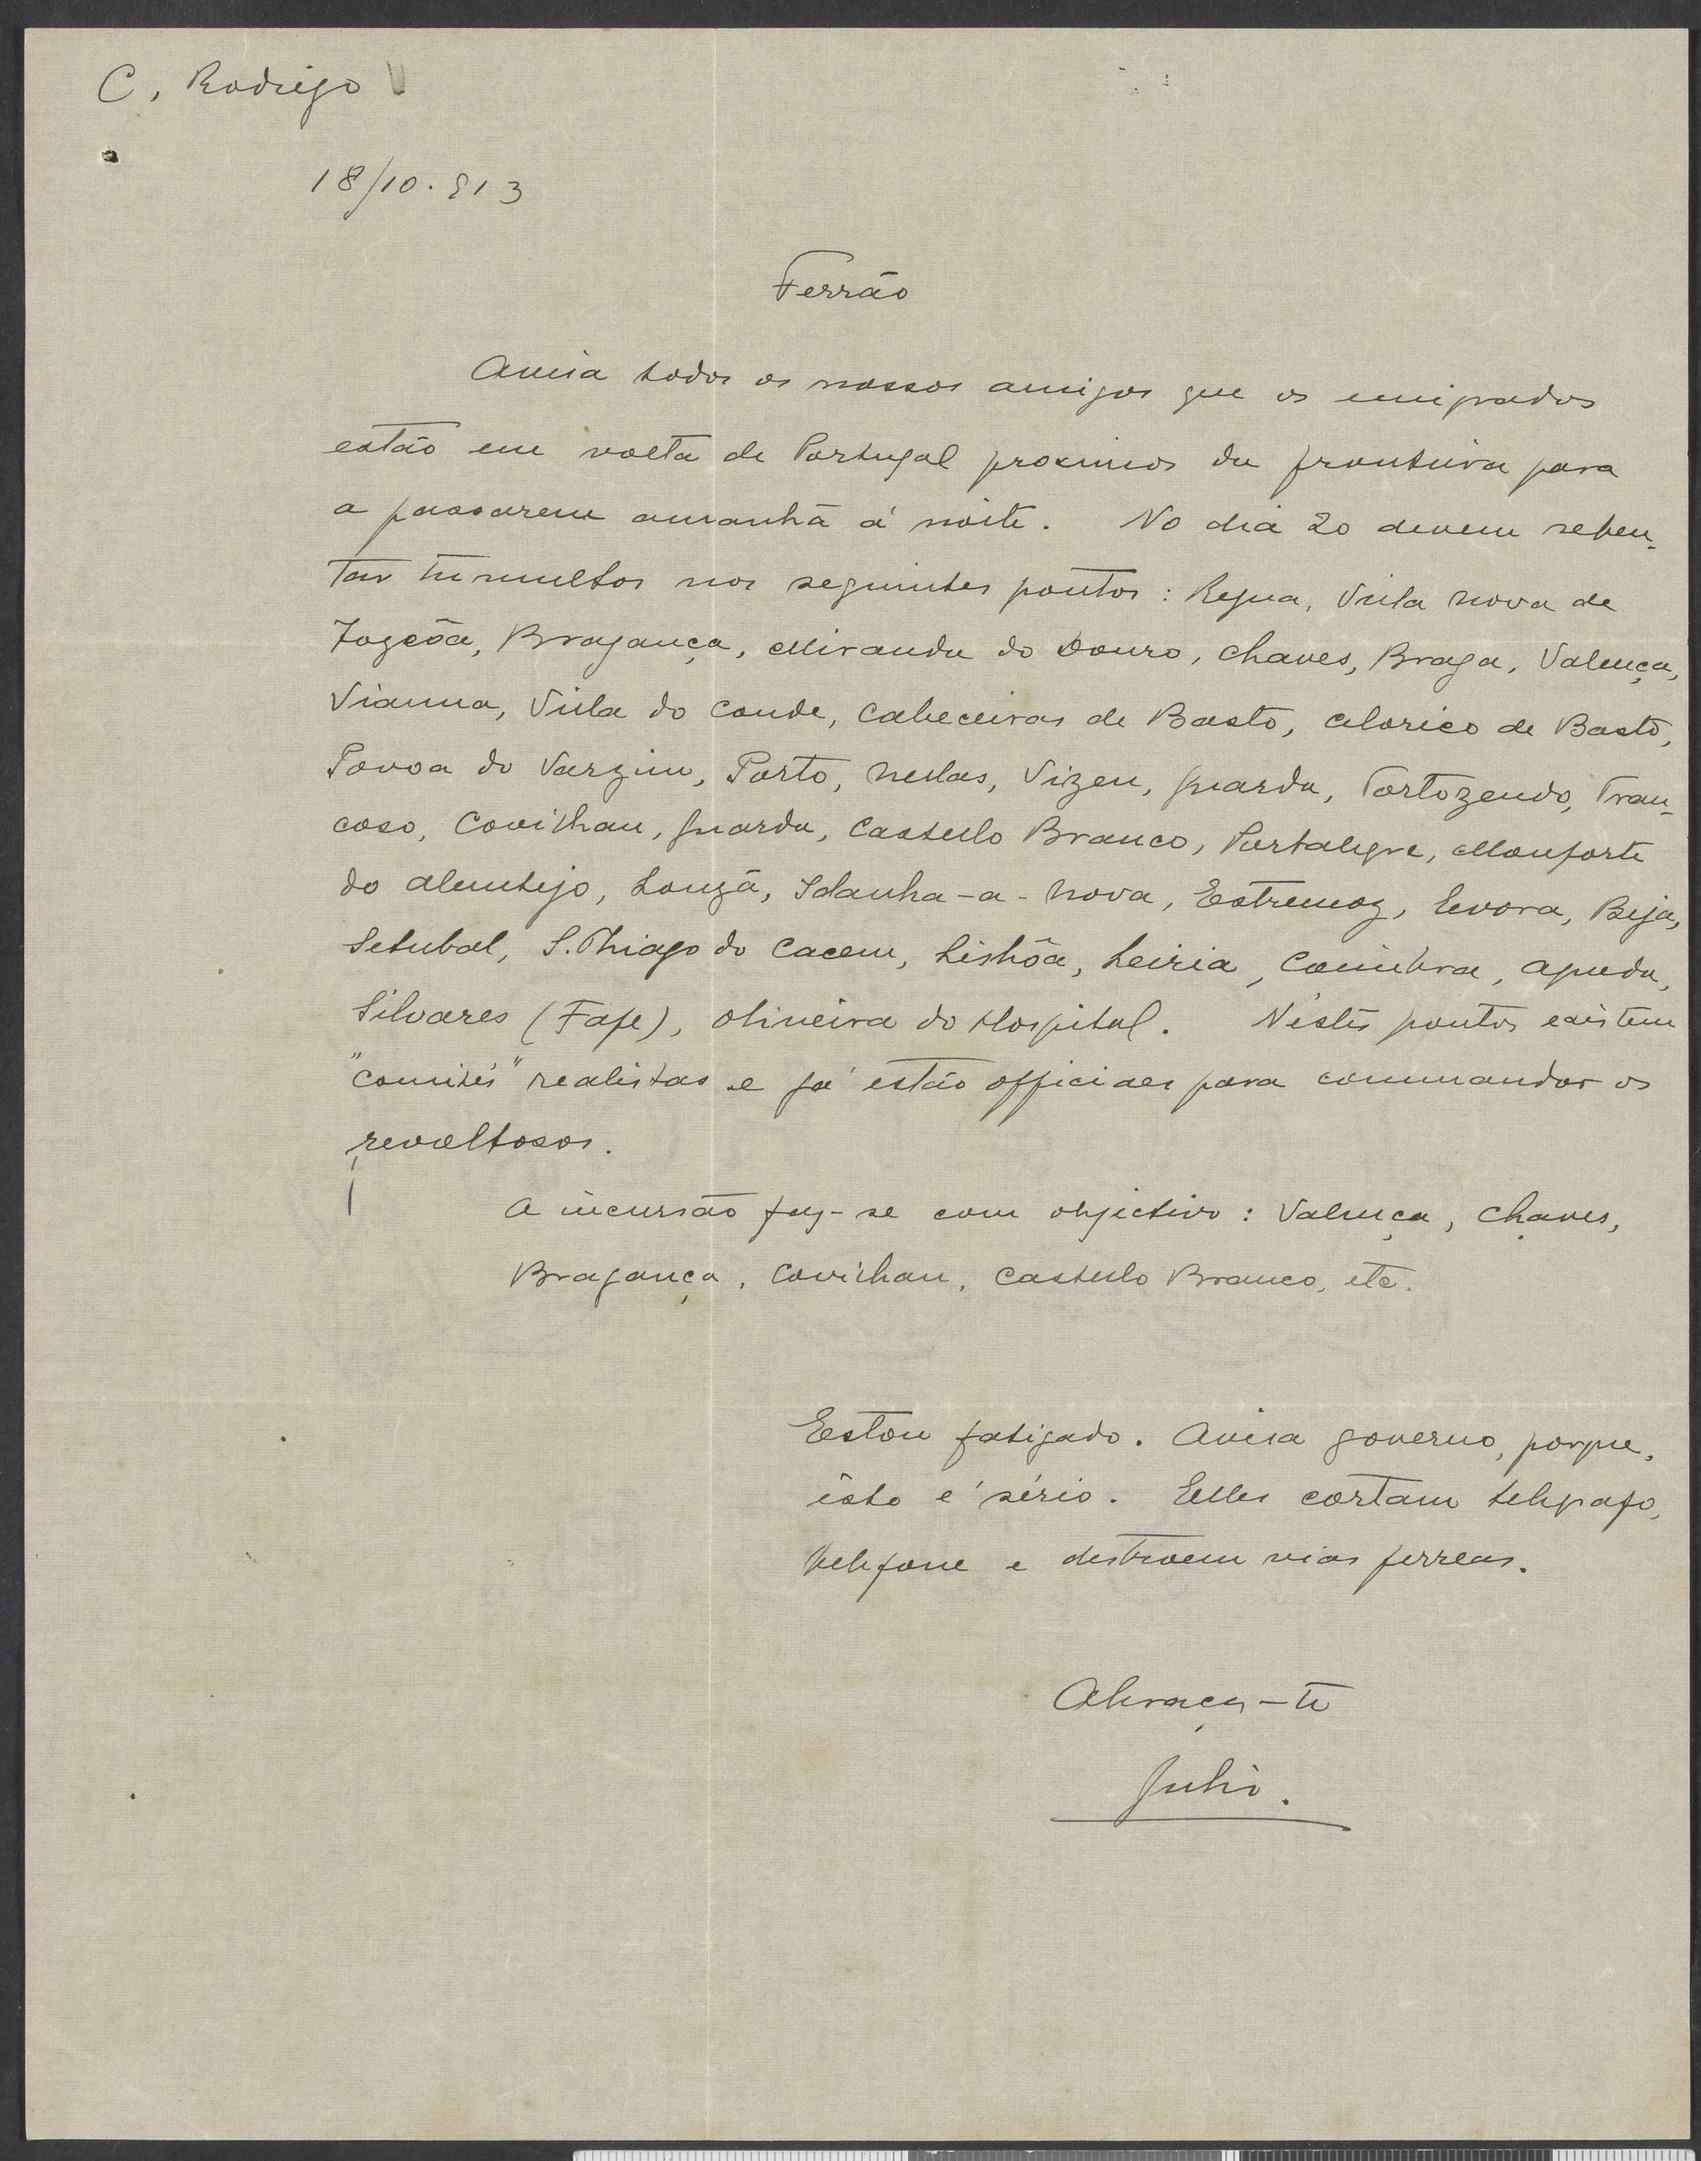 C. Rodrigo
18/10.913
Ferrão
Avisa todos os nossos amigos que os emigrados
estão em volta de Portugal proximos da fronteira para
a passarem amanhã á noite. No dia 20 devem reben-
tar tumultos nos seguintes pontos: Regua, Villa Nova de
Fozcôa, Bragança, Miranda do Douro, Chaves, Braga, Valença,
Vianna, Villa do Conde, Cabeceiras de Basto, Celorico de Basto,
Povoa do Varzim, Porto, Nellas, Vizeu, Guarda, Tortozendo, Tran-
coso, Covilhan, Guarda, Castello Branco, Portalegre, Monforte
do Alemtejo, Louzã, Idanha-a-Nova, Estremoz, Evora, Beja,
Setubal, S. Thiago do Cacem, Lisbôa, Leiria, Coimbra, Agueda,
Silvares (Fafe), Oliveira do Hospital. Néstes pontos existem
"comités" realistas e já estão officiaes para commandar os
revoltosos.
A incursão faz-se com objectivo: Valença, Chaves,
Bragança, Covilhan, Castello Branco, etc.
Estou fatigado. Avisa governo, porque,
isto é sério. Elles cortam telegrafo,
telefone e destroem vias ferreas.
Abraça-te
Julio.